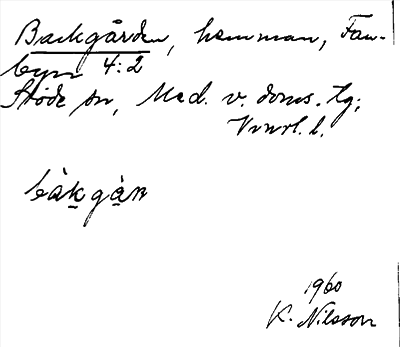 Backgården, hemman, Fan-
byn 4:2
Stöde sn, Med. v. doms. tg;
Vnrl. l.
bàkgàɳ
1960
K. Nilsson